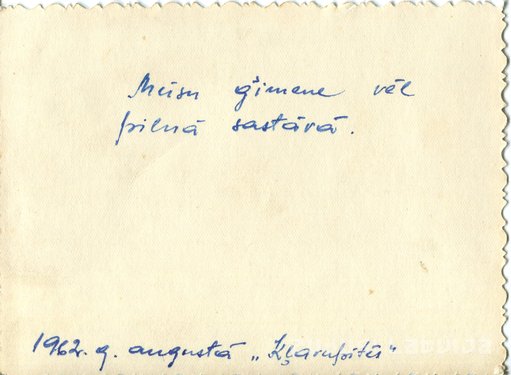 Mūsu ģimene vēl
pilnā sastāvā.
1962. g. augustā „Kļavusītēs"